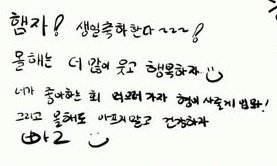 햄자! 생일축하한다~~~!
올해는 더 많이 웃고 행복하자
너가 좋아하는 회 먹으러가자 형이 사줄게 임마!
그리고 올해도 아프지말고 건강하자